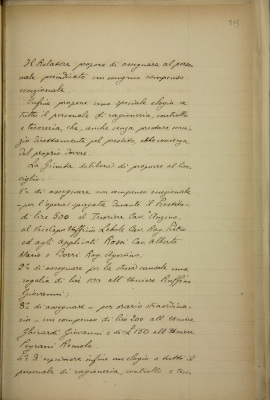 Il Relatore propone di assegnare al perso-
nale predicato un congruo compenso
eccezionale.
Infine propone uno speciale elogio a
tutto il personale di ragioneria, controllo
e tesoreria, che, anche senza prestare
direttamente pel prestito, ebbe
del proprio dovere.
La Giunta delibera di proporre al Con-
siglio:
1º di assegnare un compenso eccezionale
per l'opera spiegata durante il Prestito
di lire 500 al Tesoriere Cav.
al Vicecapo Ruffino Rag. Pietro
ed agli Applicati Rossi Cav. Alberto
Mario e Borri Rag. Agostino;
2º di assegnare per la stessa causale una
regalia di lire 150 all'Usciere Ruffino
Giovanni;
3º di assegnare per orario straordina-
rio un compenso di lire 200 all'Usciere
Ghirardi Giovanni e di L. 150 all'Usciere
Romolo.
4º di esprimere infine un elogio a tutto il
personale di ragioneria, controllo e teso-